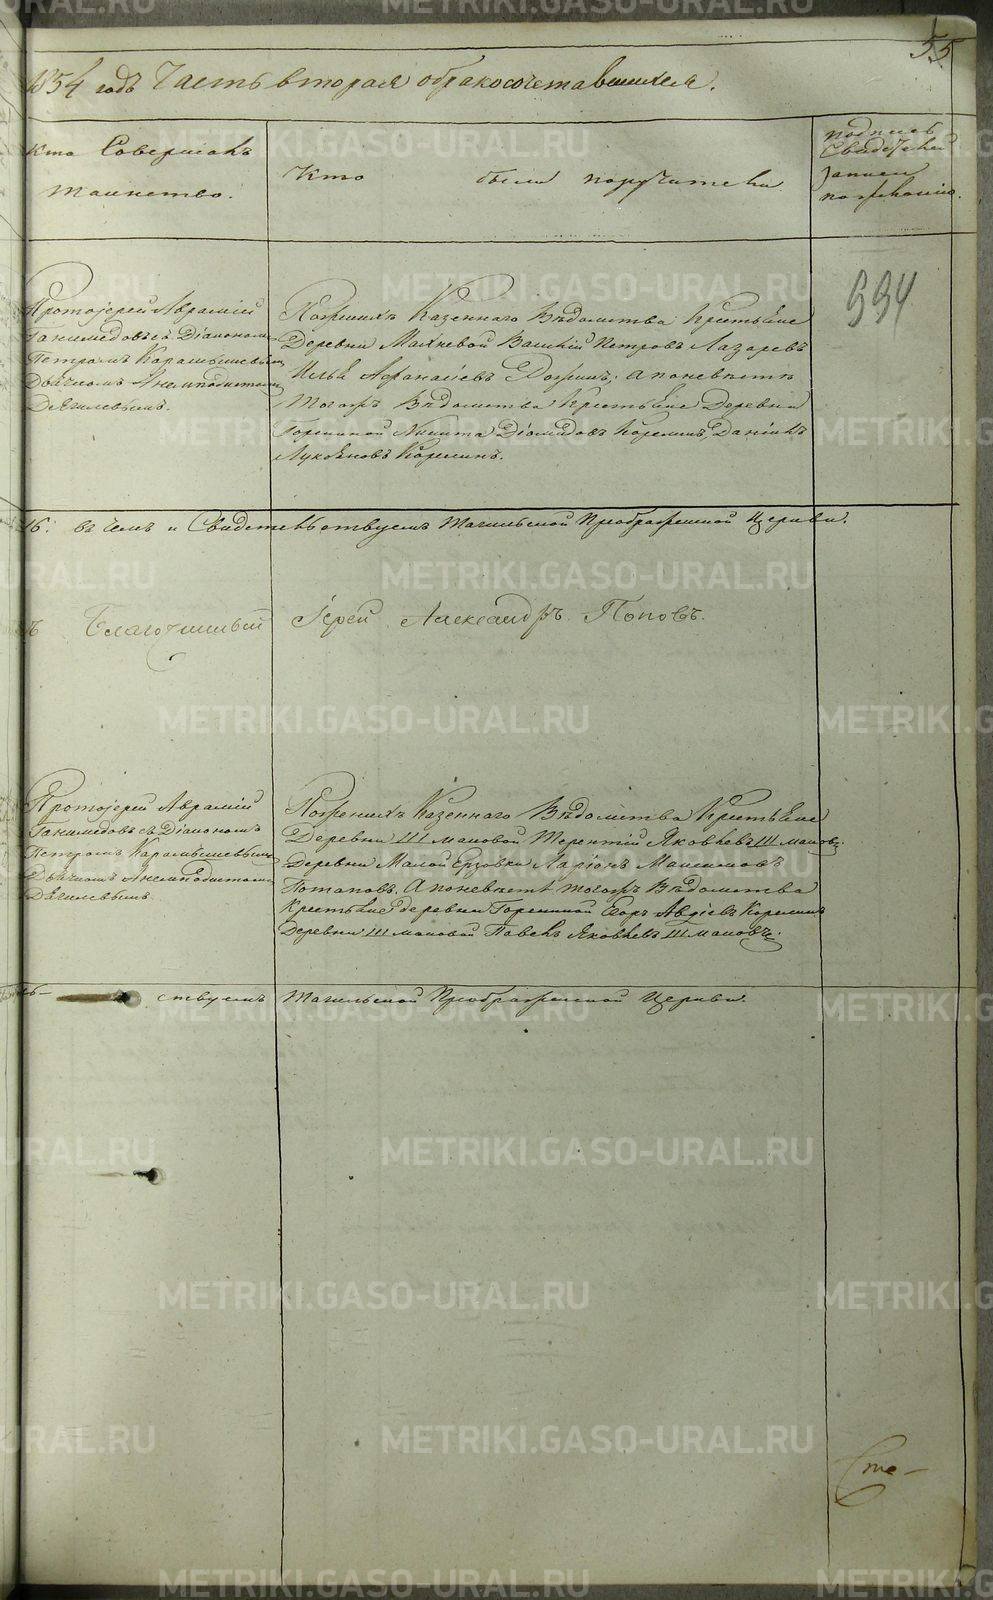 55
1854 годъ Часть вторая обракосочетавшихся.
Кто Совершалъ
таинство.
Кто были поручители
подпись
Свидѣтелей
записи
пожеланію.
994
Протоіерей Аврамій
Ганимедовъ съ Діакономъ
Петромъ Карамышевымъ
Дьячкомъ Анемподистомъ
Дягилевымъ.
Пожених Казеннаго Вѣдомства Крестьяне
Деревни Махневой Василій Петровъ Лазаревъ
Илья Афанасіевъ апоневѣстѣ
тогожъ Вѣдомства Крестьяне Деревни
Горскиной Никита Діомидовъ Корелинъ, Даніилъ
Лукояновъ Корелинъ.
въ чемъ и Свидетельствуемъ Тагильской Преображенской Церкви.
Благочинный Іерей Александръ Поповъ.
Протоіерей Аврамій
Ганимедовъ съ Діакономъ
Петромъ Карамышевымъ
Дьячкомъ Анемподистомъ
Дягилевымъ.
Поженихѣ Казеннаго Вѣдомства Крестьяне
Деревни Шмаковой Терентій Яковлевъ Шмаковъ.
деревни Малой Ерзовки Ларіонъ Максимовъ
Потаповъ. Апоневѣстѣ тогожъ Вѣдомства
Крестьяне деревни Горскиной Егоръ Авдіевъ Корелинъ
Деревни Шмаковой Павелъ Яковлевъ Шмаковъ.
ствуемъ Тагильской Преображенской Церкви.
METRIKI.GASO-URAL.RU